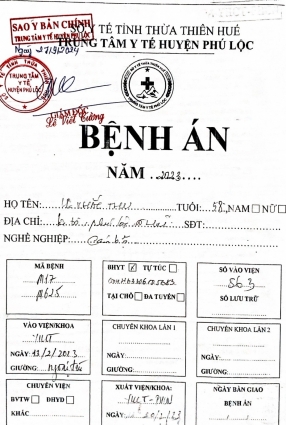 SỞ Y TẾ TỈNH THỪA THIÊN HUẾ
SAO Y BẢN CHÍNH
TRUNG TÂM Y TẾ HUYỆN PHÚ LỘC
TRUNG TÂM Y TẾ HUYỆN PHÚ LỘC
Ngày
TRUNG TÂM
Y TẾ
HUYỆN PHÚ LỘC
GIÁM ĐỐC
Lê Viết Cường
BỆNH ÁN
NĂM 2023
HỌ TÊN: TUỔI: 58 NAM NỮ
ĐỊA CHỈ: SĐT:
NGHỀ NGHIỆP: Cán bộ
MÃ BỆNH
M17
BHYT ✓ TỰ TÚC
TẠI CHỖ ĐA TUYẾN
SỐ VÀO VIỆN
563
SỐ LƯU TRỮ
VÀO VIỆN/KHOA
YHCT
NGÀY 13/2/2023
GIƯỜNG: Ngoại trú
CHUYÊN KHOA LẦN 1
NGÀY:
GIƯỜNG:
CHUYÊN KHOA LẦN 2
NGÀY:
GIƯỜNG:
CHUYỂN VIỆN
BVTW ĐHYD
KHÁC
XUẤT VIỆN/KHOA:
YHCT - PHCN
NGÀY BÀN GIAO
BỆNH ÁN